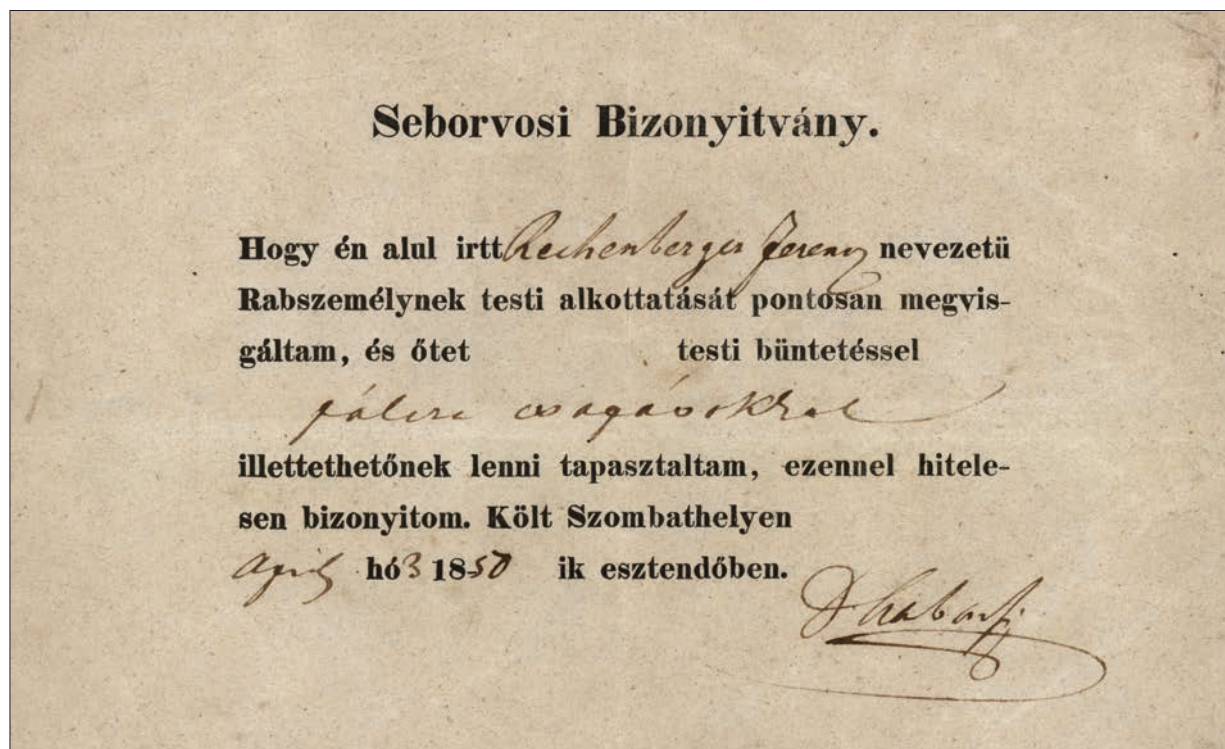 Seborvosi Bizonyitvány.
Hogy én alul irtt Rechenberger Ferencz nevezetü
Rabszemélynek testi alkottatását pontosan megvis-
gáltam, és őtet testi büntetéssel
pálcza csapásokkal
illettethetőnek lenni tapasztaltam, ezennel hitele-
sen bizonyitom. Költ Szombathelyen
April hó 3 1850 ik esztendőben.